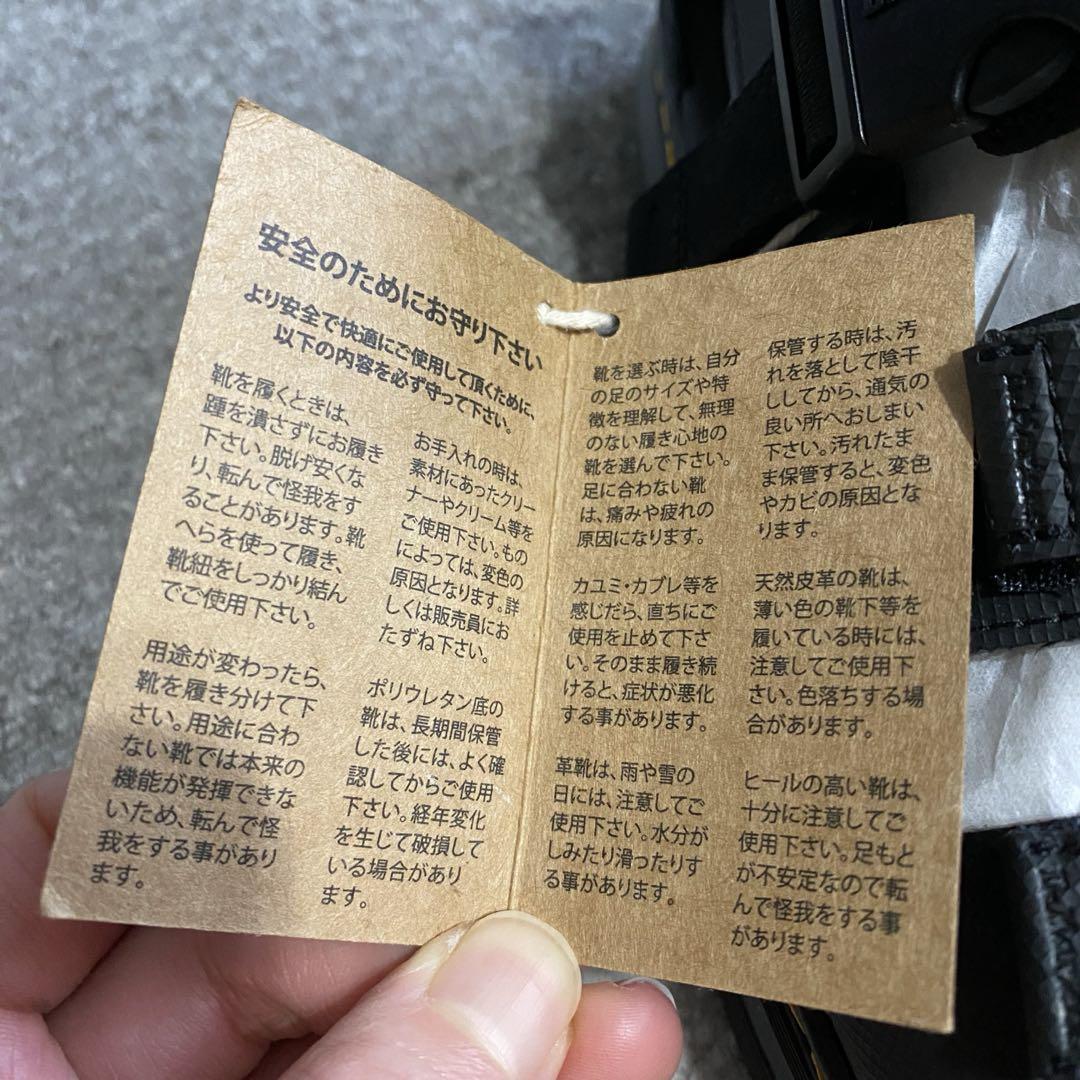 安全のためにお守り下さい
より安全で快適にご使用して頂くために、
以下の内容を必ず守って下さい。
靴を履くときは、
踵を潰さずにお履き
下さい。脱げ安くな
り、転んで怪我をす
ることがあります。靴
へらを使って履き、
靴紐をしっかり結ん
でご使用下さい。
用途が変わったら、
靴を履き分けて下
さい。用途に合わ
ない靴では本来の
機能が発揮できな
いため、転んで怪
我をする事があり
ます。
お手入れの時は、
素材にあったクリー
ナーやクリーム等を
ご使用下さい。もの
によっては、変色の
原因となります。詳
しくは販売員にお
たずね下さい。
ポリウレタン底の
靴は、長期間保管
した後には、よく確
認してからご使用
下さい。経年変化
を生じて破損して
いる場合があり
ます。
靴を選ぶ時は、自分
の足のサイズや特
徴を理解して、無理
のない履き心地の
靴を選んで下さい。
足に合わない靴
は、痛みや疲れの
原因になります。
カユミ・カブレ等を
感じだら、直ちにご
使用を止めて下さ
い。そのまま履き続
けると、症状が悪化
する事があります。
革靴は、雨や雪の
日には、注意してご
使用下さい。水分が
しみたり滑ったりす
る事があります。
保管する時は、汚
れを落として陰干
ししてから、通気の
良い所へおしまい
下さい。汚れたま
ま保管すると、変色
やカビの原因とな
ります。
天然皮革の靴は、
薄い色の靴下等を
履いている時には、
注意してご使用下
さい。色落ちする場
合があります。
ヒールの高い靴は、
十分に注意してご
使用下さい。足もと
が不安定なので転
んで怪我をする事
があります。